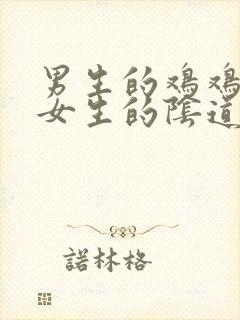 男生的鸡鸡
女生的陰道
諾林格